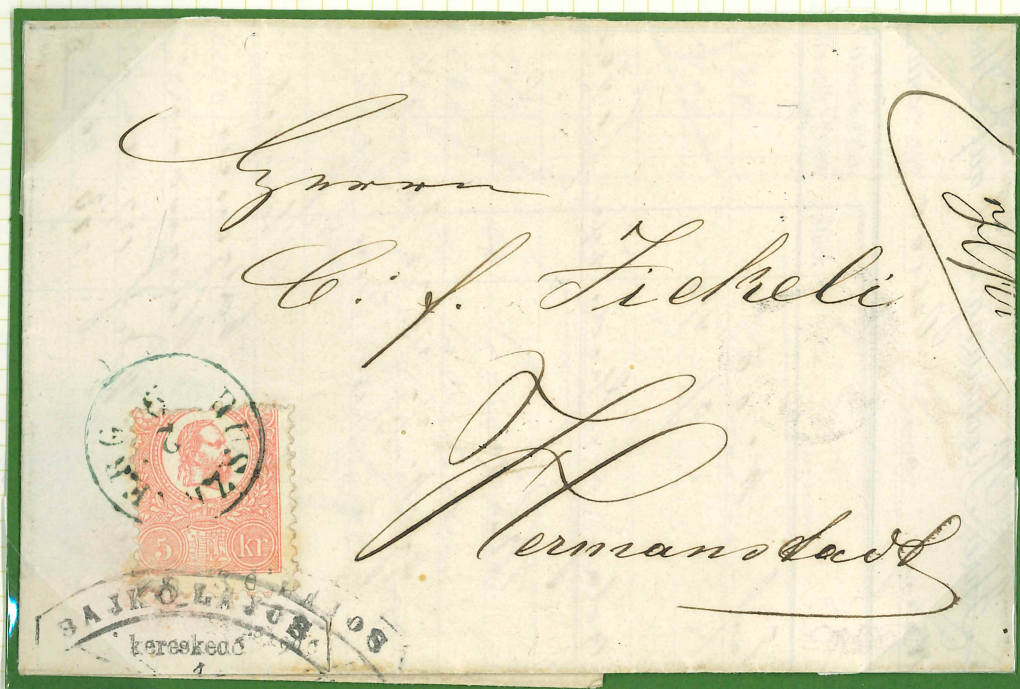 Herrn
C. f. Fickeli
Hermanstadt
5 kr
BAJKÓ LAJOS
kereskedő